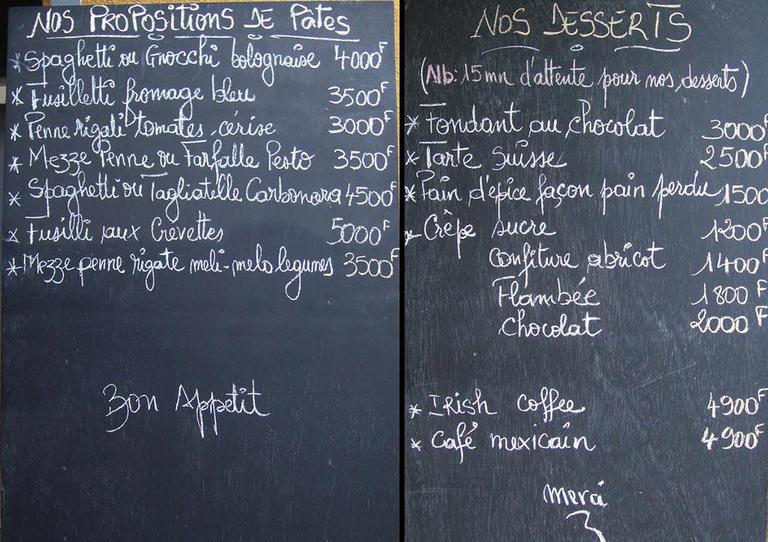 NOS PROPOSITIONS DE Pâtes
* Spaghetti ou Gnocchi bolognaise 4000F
* Fusilletti fromage bleu 3500F
* Penne rigati tomates cerise 3000F
* Mezze Penne ou Farfalle Pesto 3500F
* Spaghetti ou Tagliatelle Carbonara 4500F
* Fusilli aux Crevettes 5000F
* Mezze penne rigate meli-melo legumes 3500F
Bon Appetit
NOS DESSERTS
(Nb: 15mn d'attente pour nos desserts)
* Fondant au chocolat 3000F
* Tarte Suisse 2500F
* Pain d'épice façon pain perdu 1500
* Crêpe sucre 1200F
confiture abricot 1400F
Flambée 1800F
chocolat 2000F
* Irish coffee 4900F
* Café mexicain 4900F
merci